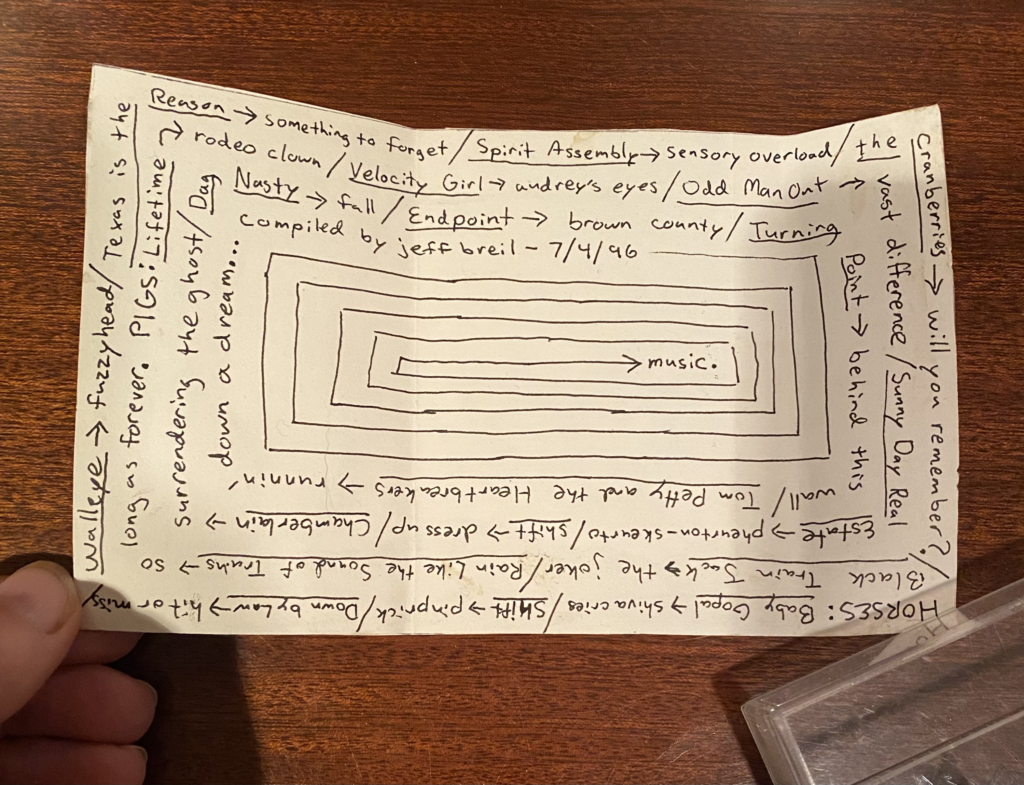 HORSES: Baby Gopal → shiva cries / Shift → pinprick / Down by Law → hit or miss /
Walleye → fuzzyhead / Texas is the
Reason → something to forget / Spirit Assembly → sensory overload / the
Cranberries → will you remember? /
Black Train Jack → the joker / Rain Like the Sound of Trains → so
long as forever. PIGS: Lifetime →
rodeo clown / Velocity Girl → audrey's eyes / Odd Man Out →
vast difference / Sunny Day Real
Estate → pheurton-skeurto / shift → dress up / Chamberlain →
surrendering the ghost / Dag
Nasty → fall / Endpoint → brown county / Turning
Point → behind this
wall / Tom Petty and the Heartbreakers → runnin'
down a dream...
Compiled by jeff breil - 7/4/96
→ music.